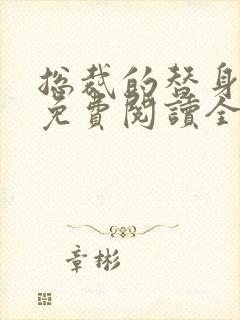 总裁的替身
免費閱讀全
章彬